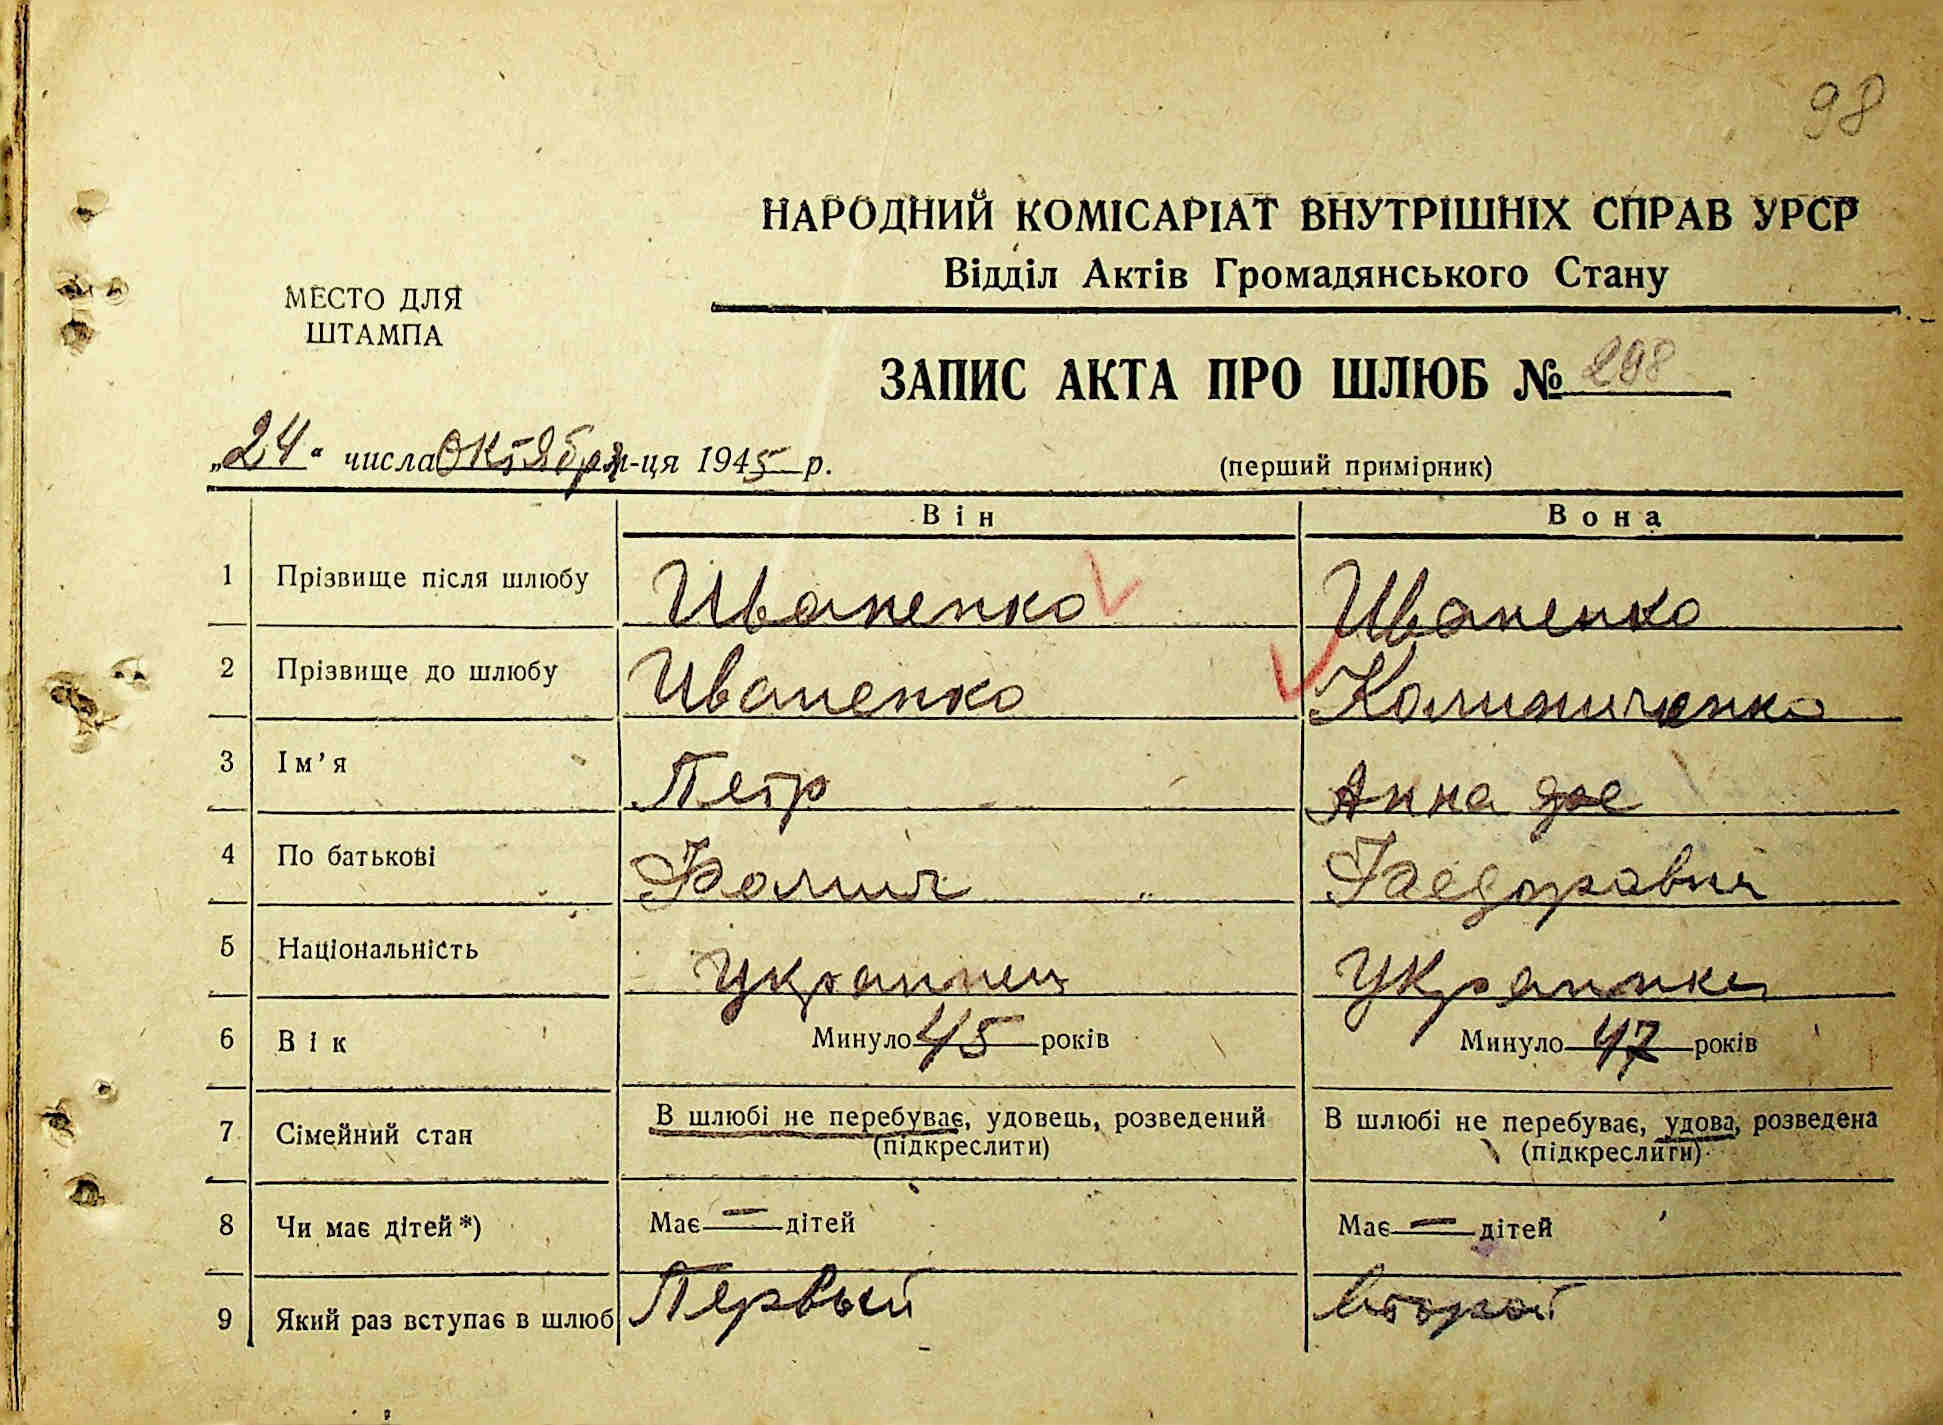 98
НАРОДНИЙ КОМІСАРІАТ ВНУТРІШНІХ СПРАВ УРСР
Відділ Актів Громадянського Стану
МЕСТО ДЛЯ
ШТАМПА
ЗАПИС АКТА ПРО ШЛЮБ № 298
„24“ числа Октября м-ця 1945 р.
(перший примірник)
Він Вона
1 Прізвище після шлюбу Иваненко Иваненко
2 Прізвище до шлюбу Иваненко Калиниченко
3 Ім’я Петр Анна
4 По батькові Фомич Фаедоравна
5 Національність Украинец Украинка
6 Вік Минуло 45 років Минуло 47 років
7 Сімейний стан В шлюбі не перебуває, удовець, розведений В шлюбі не перебуває, удова, розведена
(підкреслити) (підкреслити)
8 Чи має дітей*) Має — дітей Має — дітей
9 Який раз вступає в шлюб Первый Второй